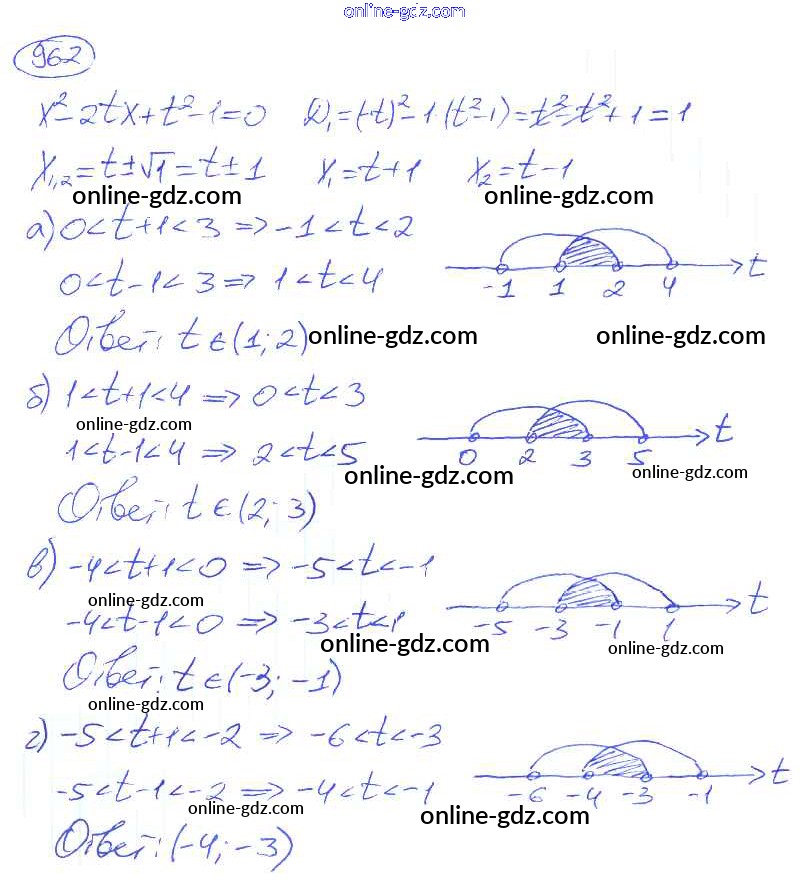 online-gdz.com
962
x² - 2tx + t² - 1 = 0 D₁ = (-t)² - 1·(t² - 1) = t² - t² + 1 = 1
x₁,₂ = t ± √1 = t ± 1 x₁ = t + 1 x₂ = t - 1
online-gdz.com online-gdz.com
а) 0 < t + 1 < 3 => -1 < t < 2
0 < t - 1 < 3 => 1 < t < 4
-1 1 2 4 t
Ответ: t ∈ (1; 2)
online-gdz.com online-gdz.com
б) 1 < t + 1 < 4 => 0 < t < 3
online-gdz.com
1 < t - 1 < 4 => 2 < t < 5
0 2 3 5 t
online-gdz.com online-gdz.com
Ответ: t ∈ (2; 3)
в) -4 < t + 1 < 0 => -5 < t < -1
online-gdz.com
-4 < t - 1 < 0 => -3 < t < 1
-5 -3 -1 1 t
online-gdz.com online-gdz.com
Ответ: t ∈ (-3; -1)
online-gdz.com
г) -5 < t + 1 < -2 => -6 < t < -3
-5 < t - 1 < -2 => -4 < t < -1
-6 -4 -3 -1 t
online-gdz.com online-gdz.com
Ответ: (-4; -3)